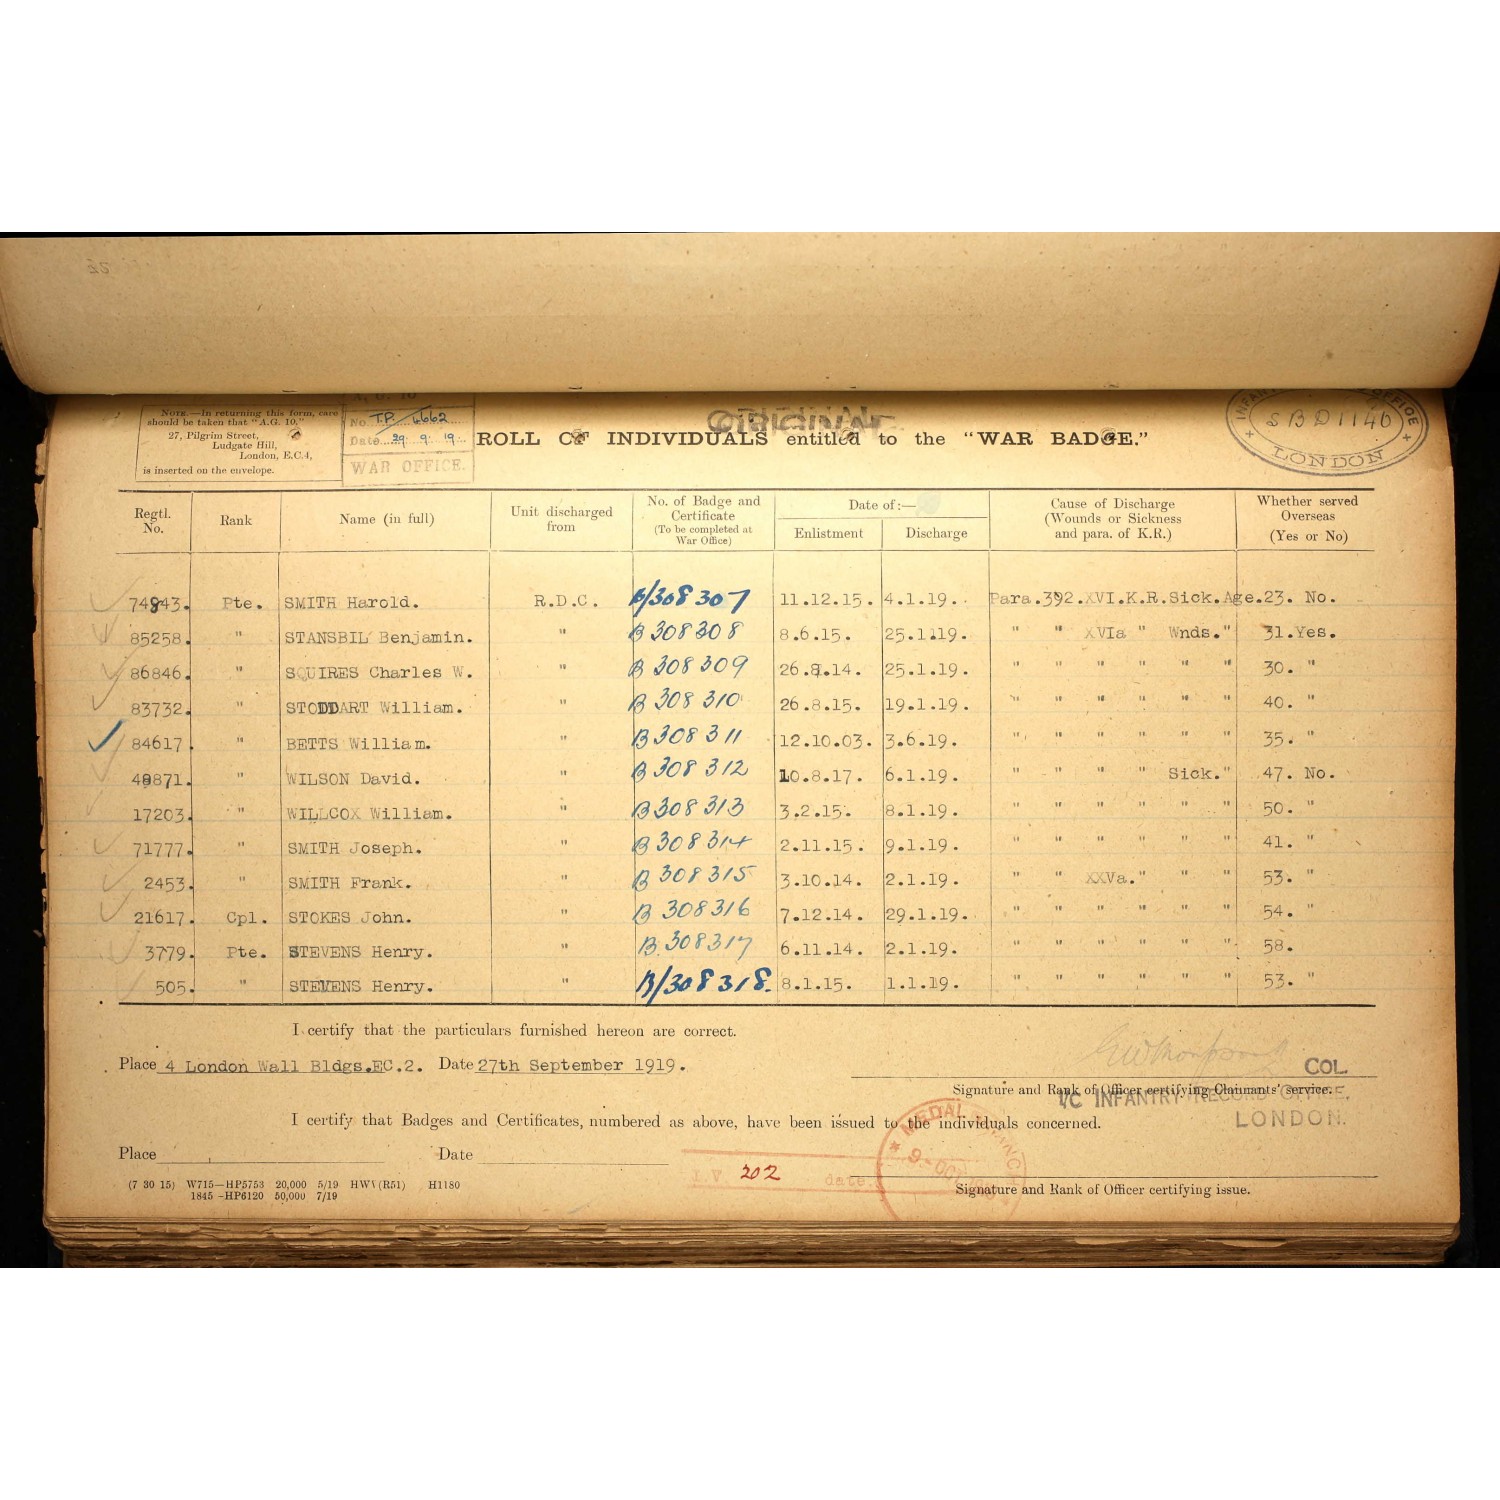 NOTE.—In returning this form, care
should be taken that "A.G. 10,"
27, Pilgrim Street,
Ludgate Hill,
London, E.C.4,
is inserted on the envelope.
A. G. 10
No. T.P. 4662
Date 29. 9. 19.
WAR OFFICE.
ORIGINAL
ROLL OF INDIVIDUALS entitled to the "WAR BADGE."
OFFICE
SBD1140
LONDON
Regtl. No. Rank Name (in full) Unit discharged from No. of Badge and Certificate (To be completed at War Office) Date of:— Enlistment Discharge Cause of Discharge (Wounds or Sickness and para. of K.R.) Whether served Overseas (Yes or No)
74843. Pte. SMITH Harold. R.D.C. B/308307 11.12.15. 4.1.19. Para.392.XVI.K.R.Sick.Age.23. No.
85258. " STANSBIL Benjamin. " B 308308 8.6.15. 25.1.19. " " XVIa " Wnds." 31.Yes.
86846. " SQUIRES Charles W. " B 308309 26.8.14. 25.1.19. " " " " " " 30. "
83732. " STODDART William. " B 308310 26.8.15. 19.1.19. " " " " " " 40. "
84617. " BETTS William. " B 308311 12.10.03. 3.6.19. " " " " " " 35. "
49871. " WILSON David. " B 308312 10.8.17. 6.1.19. " " " " Sick." 47. No.
17203. " WILLCOX William. " B 308313 3.2.15. 8.1.19. " " " " " " 50. "
71777. " SMITH Joseph. " B 308314 2.11.15. 9.1.19. " " " " " " 41. "
2453. " SMITH Frank. " B 308315 3.10.14. 2.1.19. " " XXVa." " " 53. "
21617. Cpl. STOKES John. " B 308316 7.12.14. 29.1.19. " " " " " " 54. "
3779. Pte. STEVENS Henry. " B 308317 6.11.14. 2.1.19. " " " " " " 58.
505. " STEVENS Henry. " B/308318. 8.1.15. 1.1.19. " " " " " " 53. "
I certify that the particulars furnished hereon are correct.
Place 4 London Wall Bldgs.EC.2. Date 27th September 1919.
COL.
Signature and Rank of Officer certifying Claimants' service.
I/C INFANTRY RECORD OFFICE,
LONDON.
I certify that Badges and Certificates, numbered as above, have been issued to the individuals concerned.
Place Date
MEDAL BRANCH
9 - OCT 1919
I.V. 202 date
Signature and Rank of Officer certifying issue.
(7 30 15) W715—HP5753 20,000 5/19 HWV(R51) H1180
1845 -HP6120 50,000 7/19